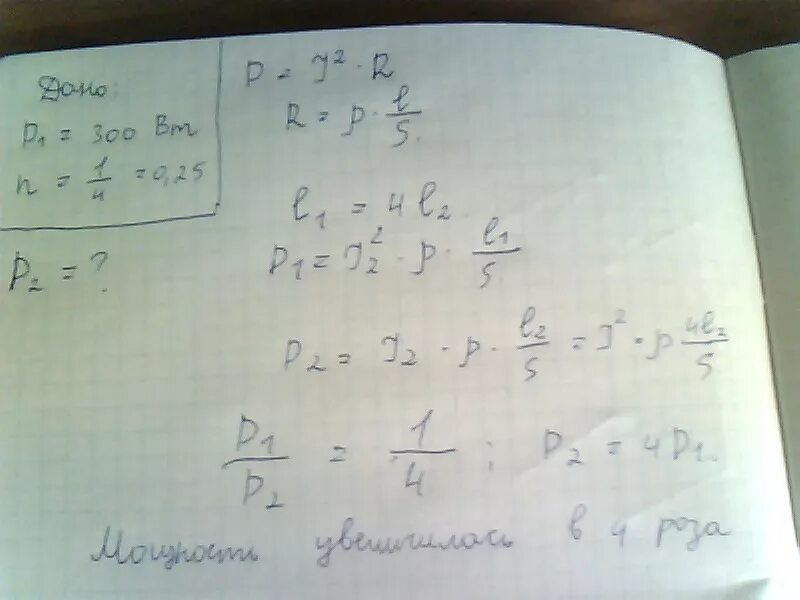 Дано:
P₁ = 300 Вт
n = 1/4 = 0,25
P₂ = ?
P = I² · R
R = ρ · l/S.
l₁ = 4l₂
P₁ = I₂² · ρ · l₁/S
P₂ = I₂ · ρ · l₂/S = I² · ρ 4l₂/S
P₁/P₂ = 1/4 ; P₂ = 4P₁.
Мощность увеличилась в 4 роза